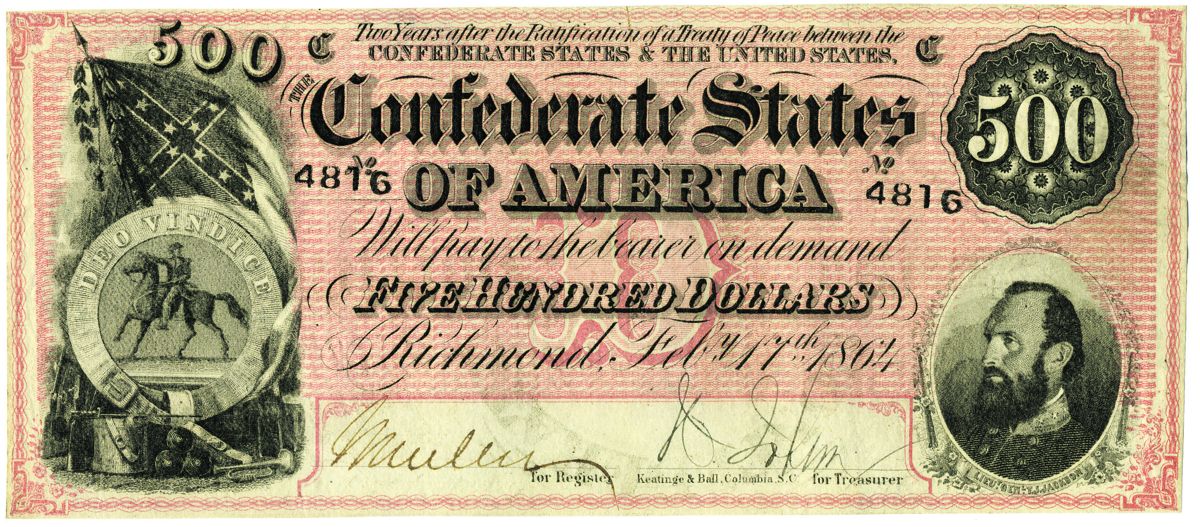 500
C
Two Years after the Ratification of a Treaty of Peace between the
CONFEDERATE STATES & THE UNITED STATES,
C
500
THE
Confederate States
No
4816
OF AMERICA
No
4816
DEO VINDICE
Will pay to the bearer on demand
FIVE HUNDRED DOLLARS
D
Richmond, Feby. 17th 1864
for Register
Keatinge & Ball, Columbia, S.C.
for Treasurer
LIEUT. GEN. T.J. JACKSON